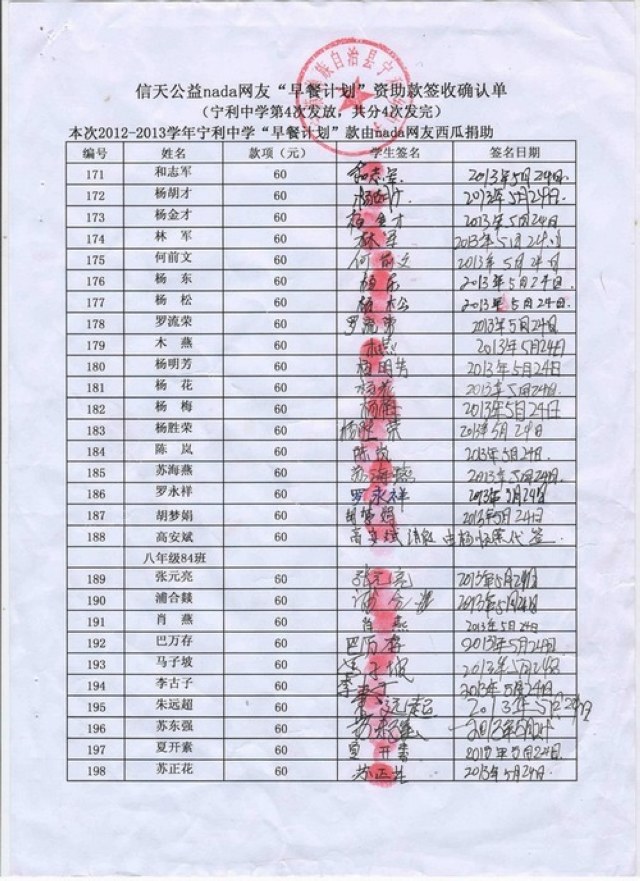 信天公益nada网友“早餐计划”资助款签收确认单
（宁利中学第4次发放，共分4次发完）
本次2012-2013学年宁利中学“早餐计划”款由nada网友西瓜捐助
编号 姓名 款项（元） 学生签名 签名日期
171 和志军 60 和志军 2013年5月24日
172 杨胡才 60 2013年5月24日
173 杨金才 60 杨金才 2013年5月24日
174 林 军 60 林军 2013年5月24日
175 何前文 60 何前文 2013年5月24日
176 杨 东 60 杨东 2013年5月24日
177 杨 松 60 杨松 2013年5月24日
178 罗流荣 60 罗流荣 2013年5月24日
179 木 燕 60 木燕 2013年5月24日
180 杨明芳 60 杨明芳 2013年5月24日
181 杨 花 60 杨花 2013年5月24日
182 杨 梅 60 杨梅 2013年5月24日
183 杨胜荣 60 杨胜荣 2013年5月24日
184 陈 岚 60 陈岚 2013年5月24日
185 苏海燕 60 苏海燕 2013年5月24日
186 罗永祥 60 罗永祥 2013年5月24日
187 胡梦娟 60 胡梦娟 2013年5月24日
188 高安斌 60 高安斌 代签
八年级84班
189 张元亮 60 张元亮 2013年5月24日
190 浦合燚 60 2013年5月24日
191 肖 燕 60 肖燕 2013年5月24日
192 巴万存 60 巴万存 2013年5月24日
193 马子坡 60 马子坡 2013年5月24日
194 李古子 60 2013年5月24日
195 朱远超 60 朱远超 2013年5月24日
196 苏东强 60 苏东强 2013年5月24
197 夏开素 60 夏开素 2013年5月24日
198 苏正花 60 苏正花 2013年5月24日